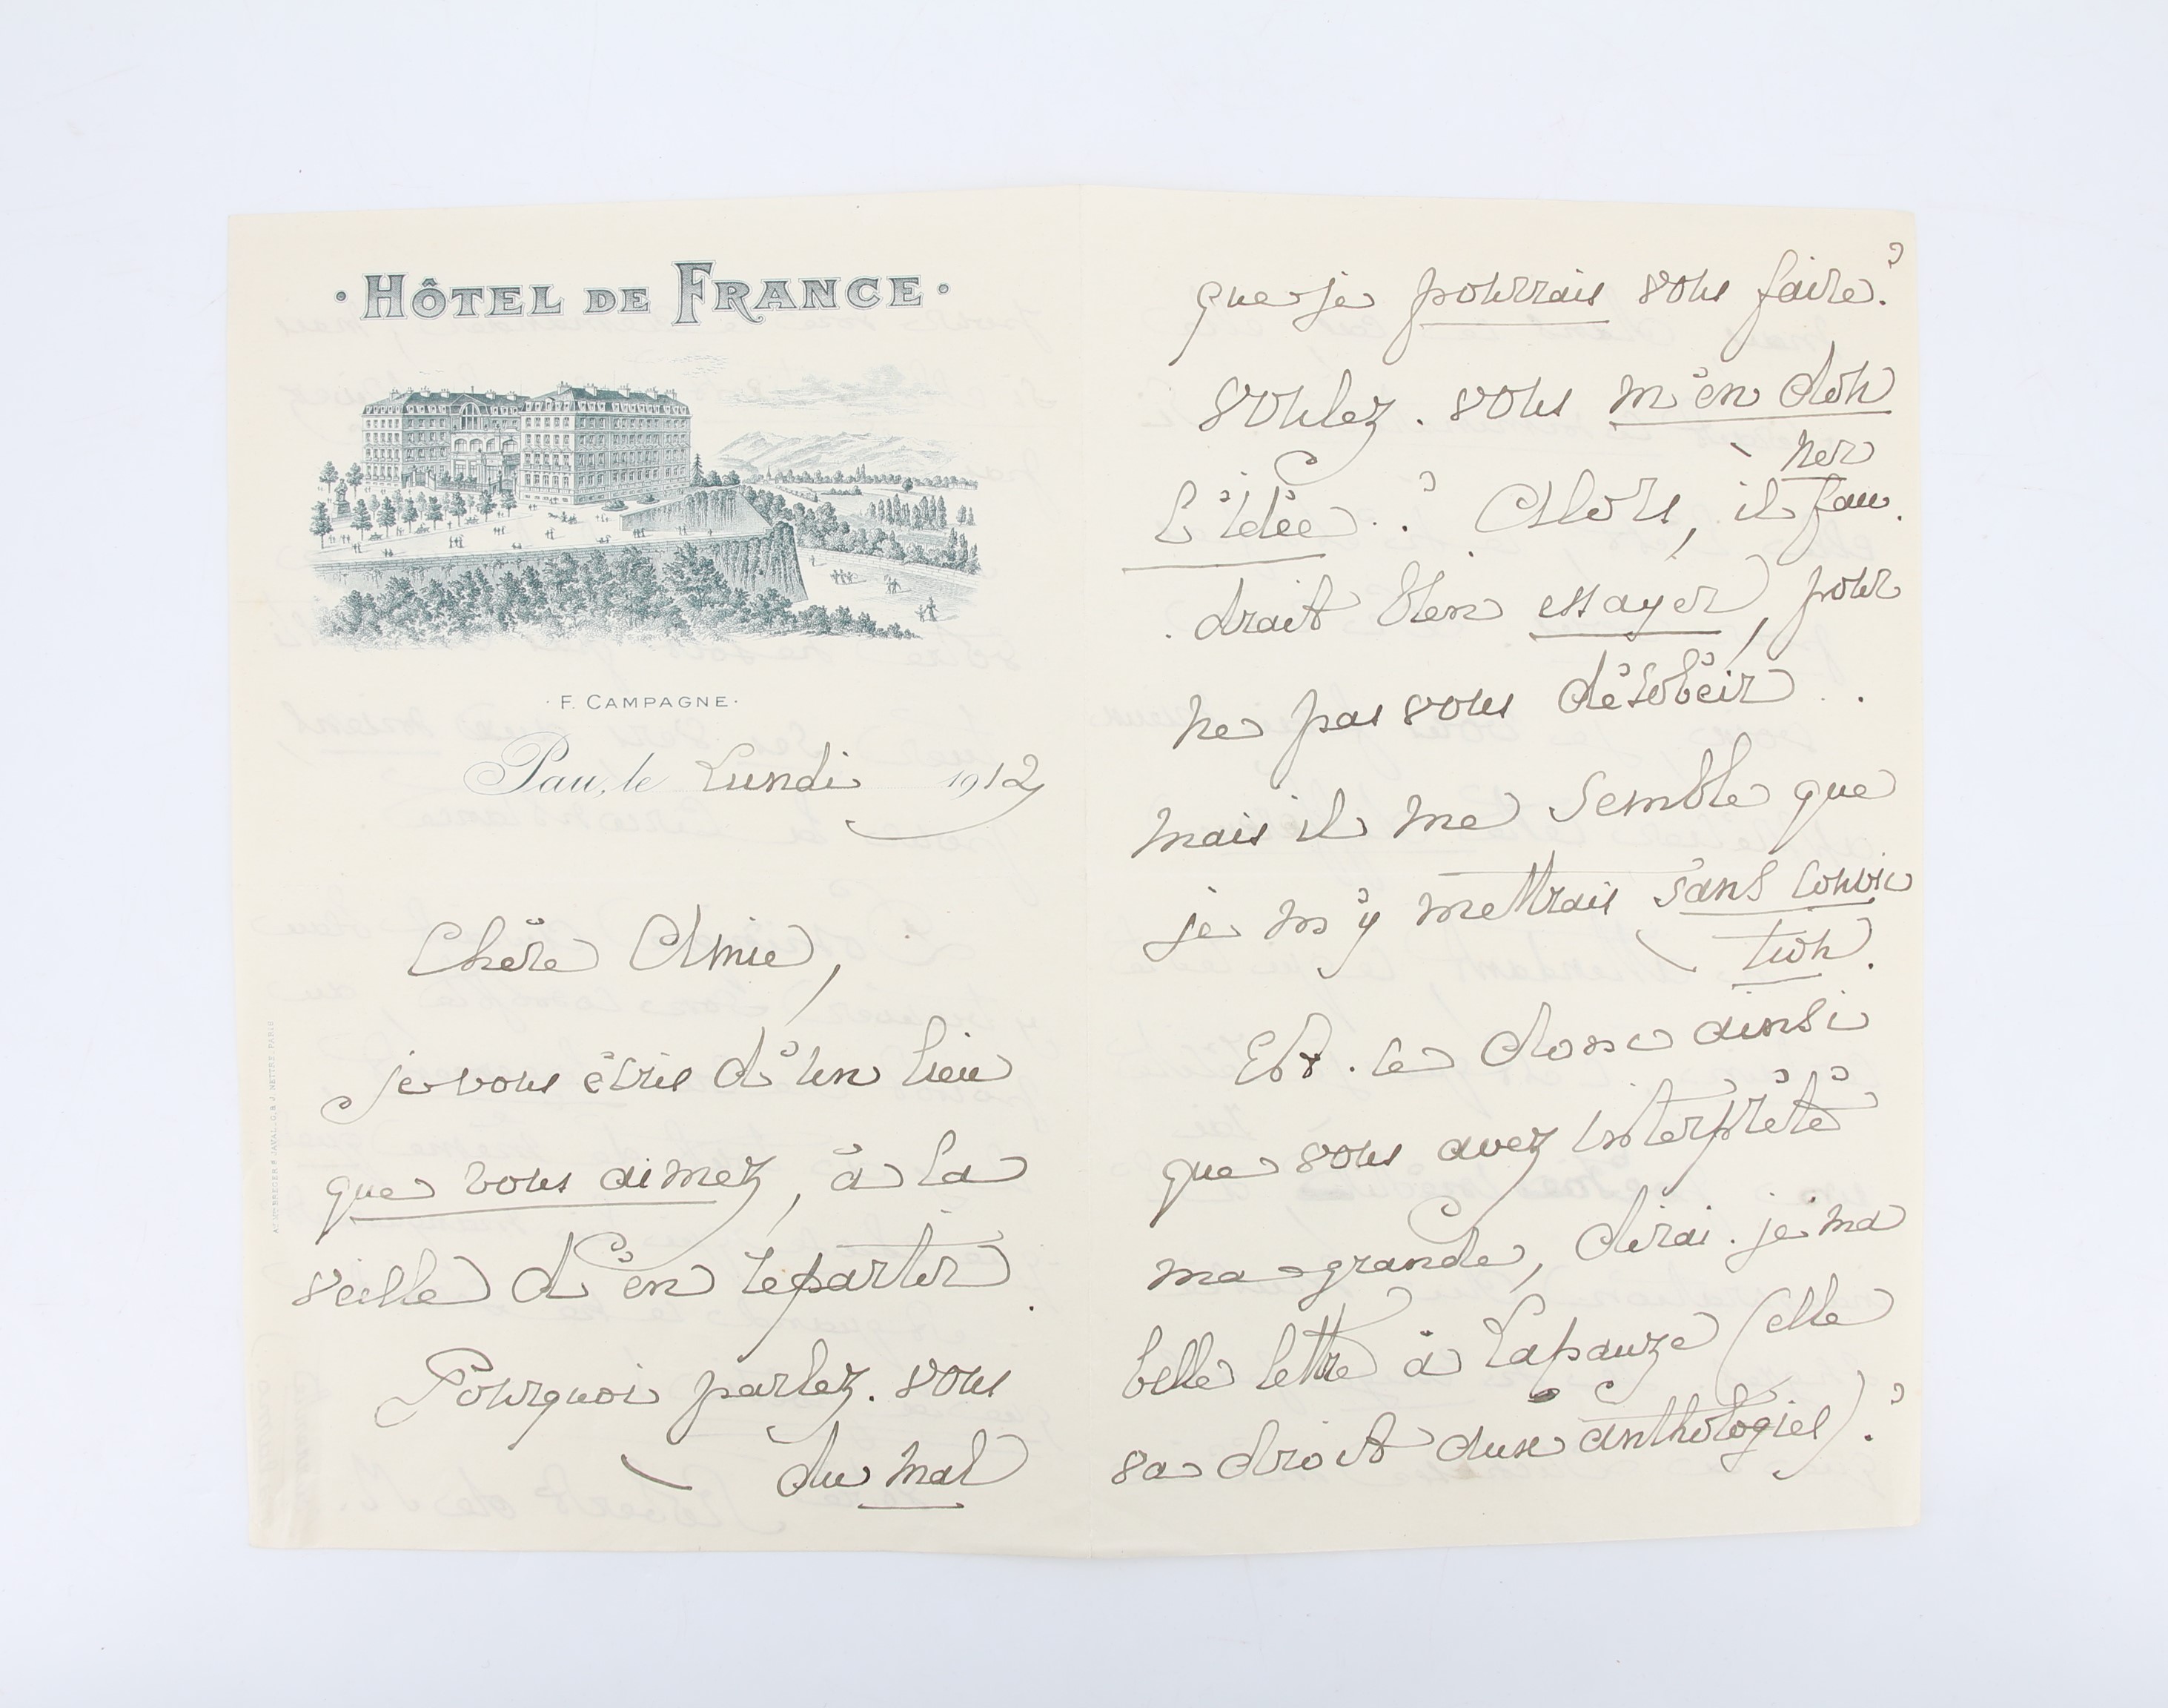 · HÔTEL DE FRANCE ·
· F. CAMPAGNE ·
Pau, le Lundi 1912
Chère Amie,
je vous écris d'un lieu
que vous aimez, à la
veille d'en repartir.
Pourquoi parlez-vous
du mal
que je pourrais vous faire?
Voulez-vous m'en don
ner
l'idée..? Alors, il fau-
-drait bien essayer, pour
ne pas vous désobéir..
mais il me semble que
je m'y mettrais sans convic
tion.
Est-ce donc ainsi
que vous avez interprété
ma grande, dirai-je ma
belle lettre à Lapauze (elle
va droit aux anthologies)?